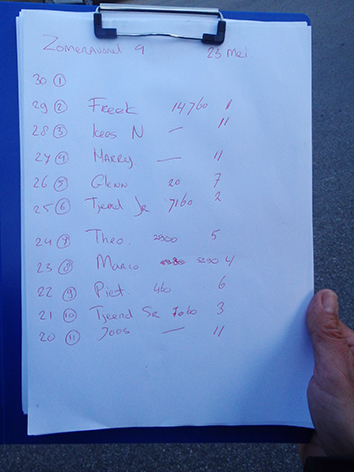 Zomeravond 9 23 Mei
30 ①
29 ② Freek 14760 1
28 ③ Kees N — 11
27 ④ Marry — 11
26 ⑤ Glenn 20 7
25 ⑥ Tjeerd Jr 7160 2
24 ⑦ Theo 2900 5
23 ⑧ Marco 5290 4
22 ⑨ Piet 460 6
21 ⑩ Tjeerd Sr 7060 3
20 ⑪ Joos — 11